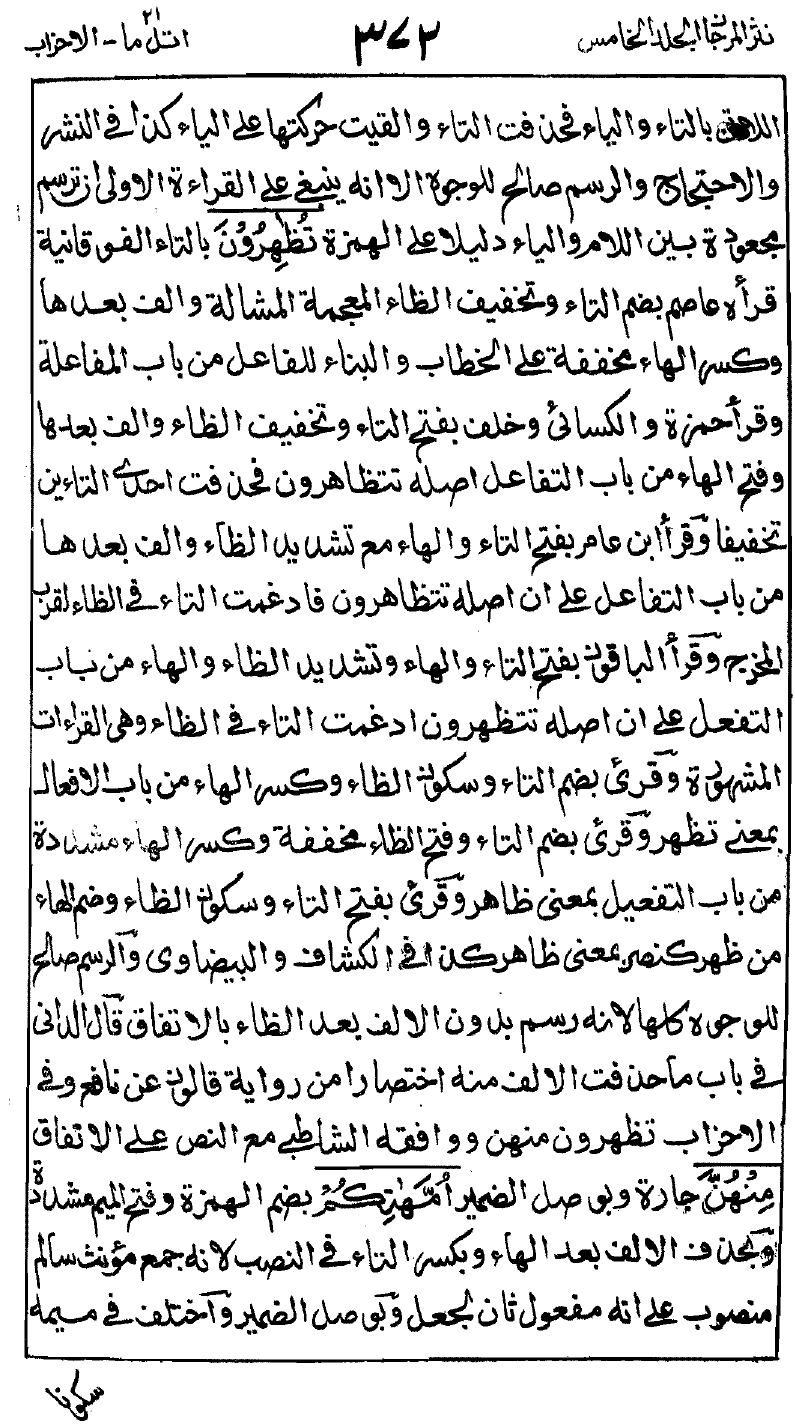 نثر المرجان المجلد الخامس ٣٧٢ اتل ما ٢١ - الاحزاب
اللاى بالتاء والياء فحذفت التاء والقيت حركتها على الياء كذا فى النشر
والاحتجاج والرسم صالح للوجوه الا انه ينبغى على القراءة الاولى ان ترسم
مجعودة بين اللام والياء دليلا على الهمزة تُظٰهِرُوْنَ بالتاء الفوقانية
قرأه عاصم بضم التاء وتخفيف الظاء المعجمة المشالة والف بعدها
وكسر الهاء مخففة على الخطاب والبناء للفاعل من باب المفاعلة
وقرأ حمزة والكسائى وخلف بفتح التاء وتخفيف الظاء والف بعدها
وفتح الهاء من باب التفاعل اصله تتظاهرون فحذفت احدى التاءين
تخفيفا وقرأ ابن عامر بفتح التاء والهاء مع تشديد الظاء والف بعدها
من باب التفاعل على ان اصله تتظاهرون فادغمت التاء فى الظاء لقرب
المخرج وقرأ الباقون بفتح التاء والهاء وتشديد الظاء والهاء من باب
التفعل على ان اصله تتظهرون ادغمت التاء فى الظاء وهى القراءات
المشهورة وقرئ بضم التاء وسكون الظاء وكسر الهاء من باب الافعال
بمعنى تظهر وقرئ بضم التاء وفتح الظاء مخففة وكسر الهاء مشددة
من باب التفعيل بمعنى ظاهر وقرئ بفتح التاء وسكون الظاء وضم الهاء
من ظهر كنصر بمعنى ظاهر كذا فى الكشاف والبيضاوى والرسم صالح
للوجوه كلها لانه رسم بدون الالف بعد الظاء بالاتفاق قال الدانى
فى باب ما حذفت الالف منه اختصارا من رواية قالون عن نافع وفى
الاحزاب تظهرون منهن ووافقه الشاطبى مع النص على الاتفاق
مِنْهُنَّ جارة وبوصل الضمير اُمَّهٰتِكُمْ بضم الهمزة وفتح الميم مشددة
وبحذف الالف بعد الهاء وبكسر التاء فى النصب لانه جمع مؤنث سالم
منصوب على انه مفعول ثان لجعل وبوصل الضمير واختلف فى ميمه
سكونا